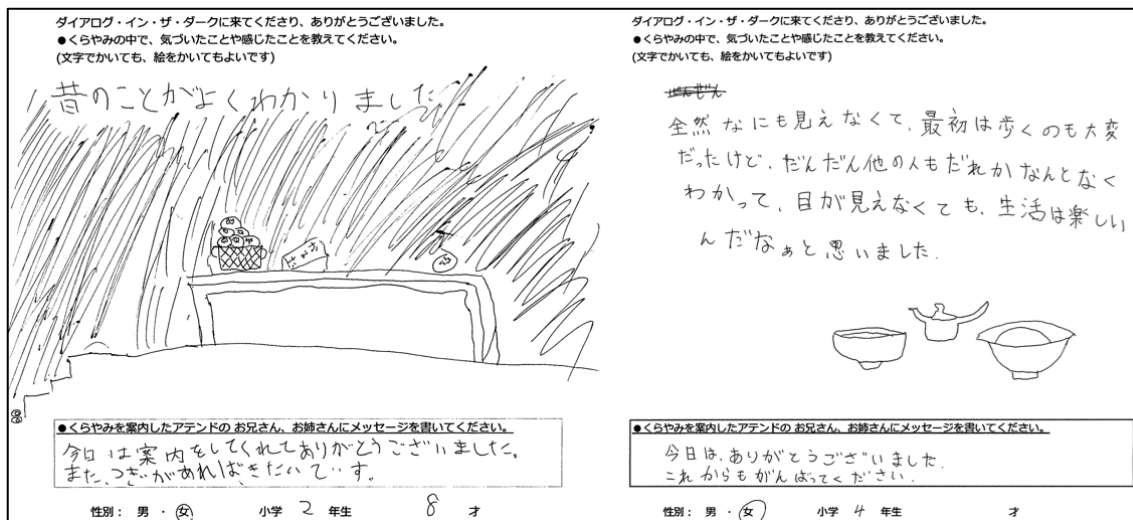 ダイアログ・イン・ザ・ダークに来てくださり、ありがとうございました。
●くらやみの中で、気づいたことや感じたことを教えてください。
(文字でかいても、絵をかいてもよいです)
昔のことがよくわかりました
●くらやみを案内したアテンドの お兄さん、お姉さんにメッセージを書いてください。
今日は案内をしてくれてありがとうございました。
また、つぎがあればきたいです。
性別： 男 ・ 女 小学 2 年生 8 才
ダイアログ・イン・ザ・ダークに来てくださり、ありがとうございました。
●くらやみの中で、気づいたことや感じたことを教えてください。
(文字でかいても、絵をかいてもよいです)
全然なにも見えなくて、最初は歩くのも大変
だったけど、だんだん他の人もだれかなんとなく
わかって、目が見えなくても、生活は楽しい
んだなぁと思いました.
●くらやみを案内したアテンドの お兄さん、お姉さんにメッセージを書いてください。
今日は、ありがとうございました.
これからもがんばってください.
性別： 男 ・ 女 小学 4 年生 才